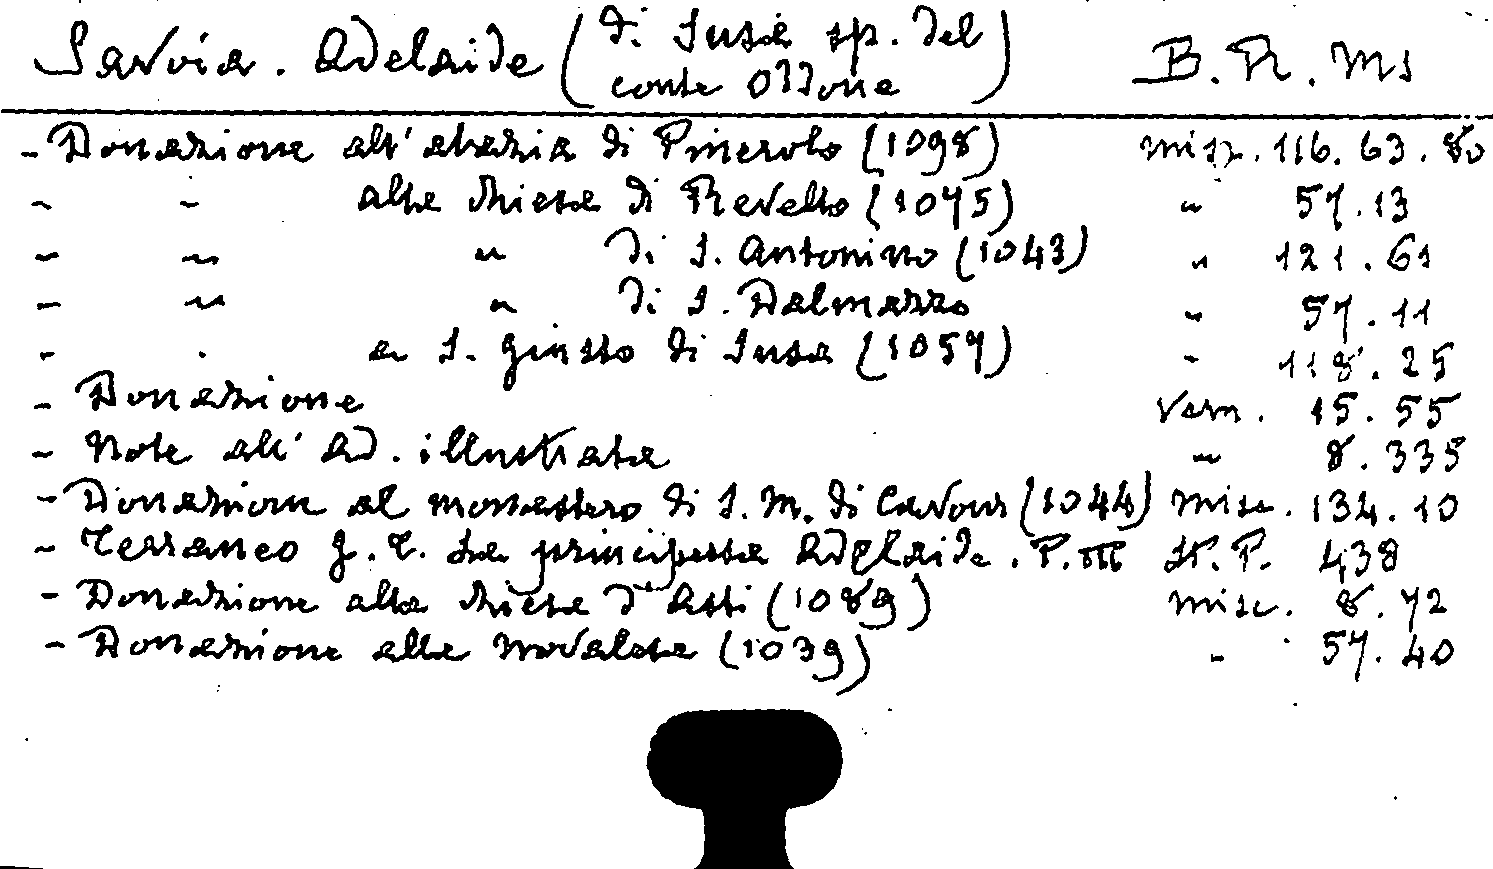 Savoia. Adelaide (di Susa sp. del conte Oddone) B. R. Ms
- Donazione all'abazia di Pinerolo (1098) misc. 116. 63. 80
- - alla chiesa di Revello (1075) " 57. 13
- " " di S. Antonino (1043) " 121. 61
- " " di S. Dalmazzo " 57. 11
- . a S. Giusto di Susa (1057) " 118. 25
- Donazione Varn. 15. 55
- Note all' Ad. illustrata " 8. 335
- Donazione al monastero di S. M. di Cavour (1044) misc. 134. 10
- Terraneo G. T. La principessa Adelaide. P. III St. P. 438
- Donazione alla chiesa d'Asti (1089) misc. 8. 72
- Donazione alla Novalesa (1039) " 57. 40